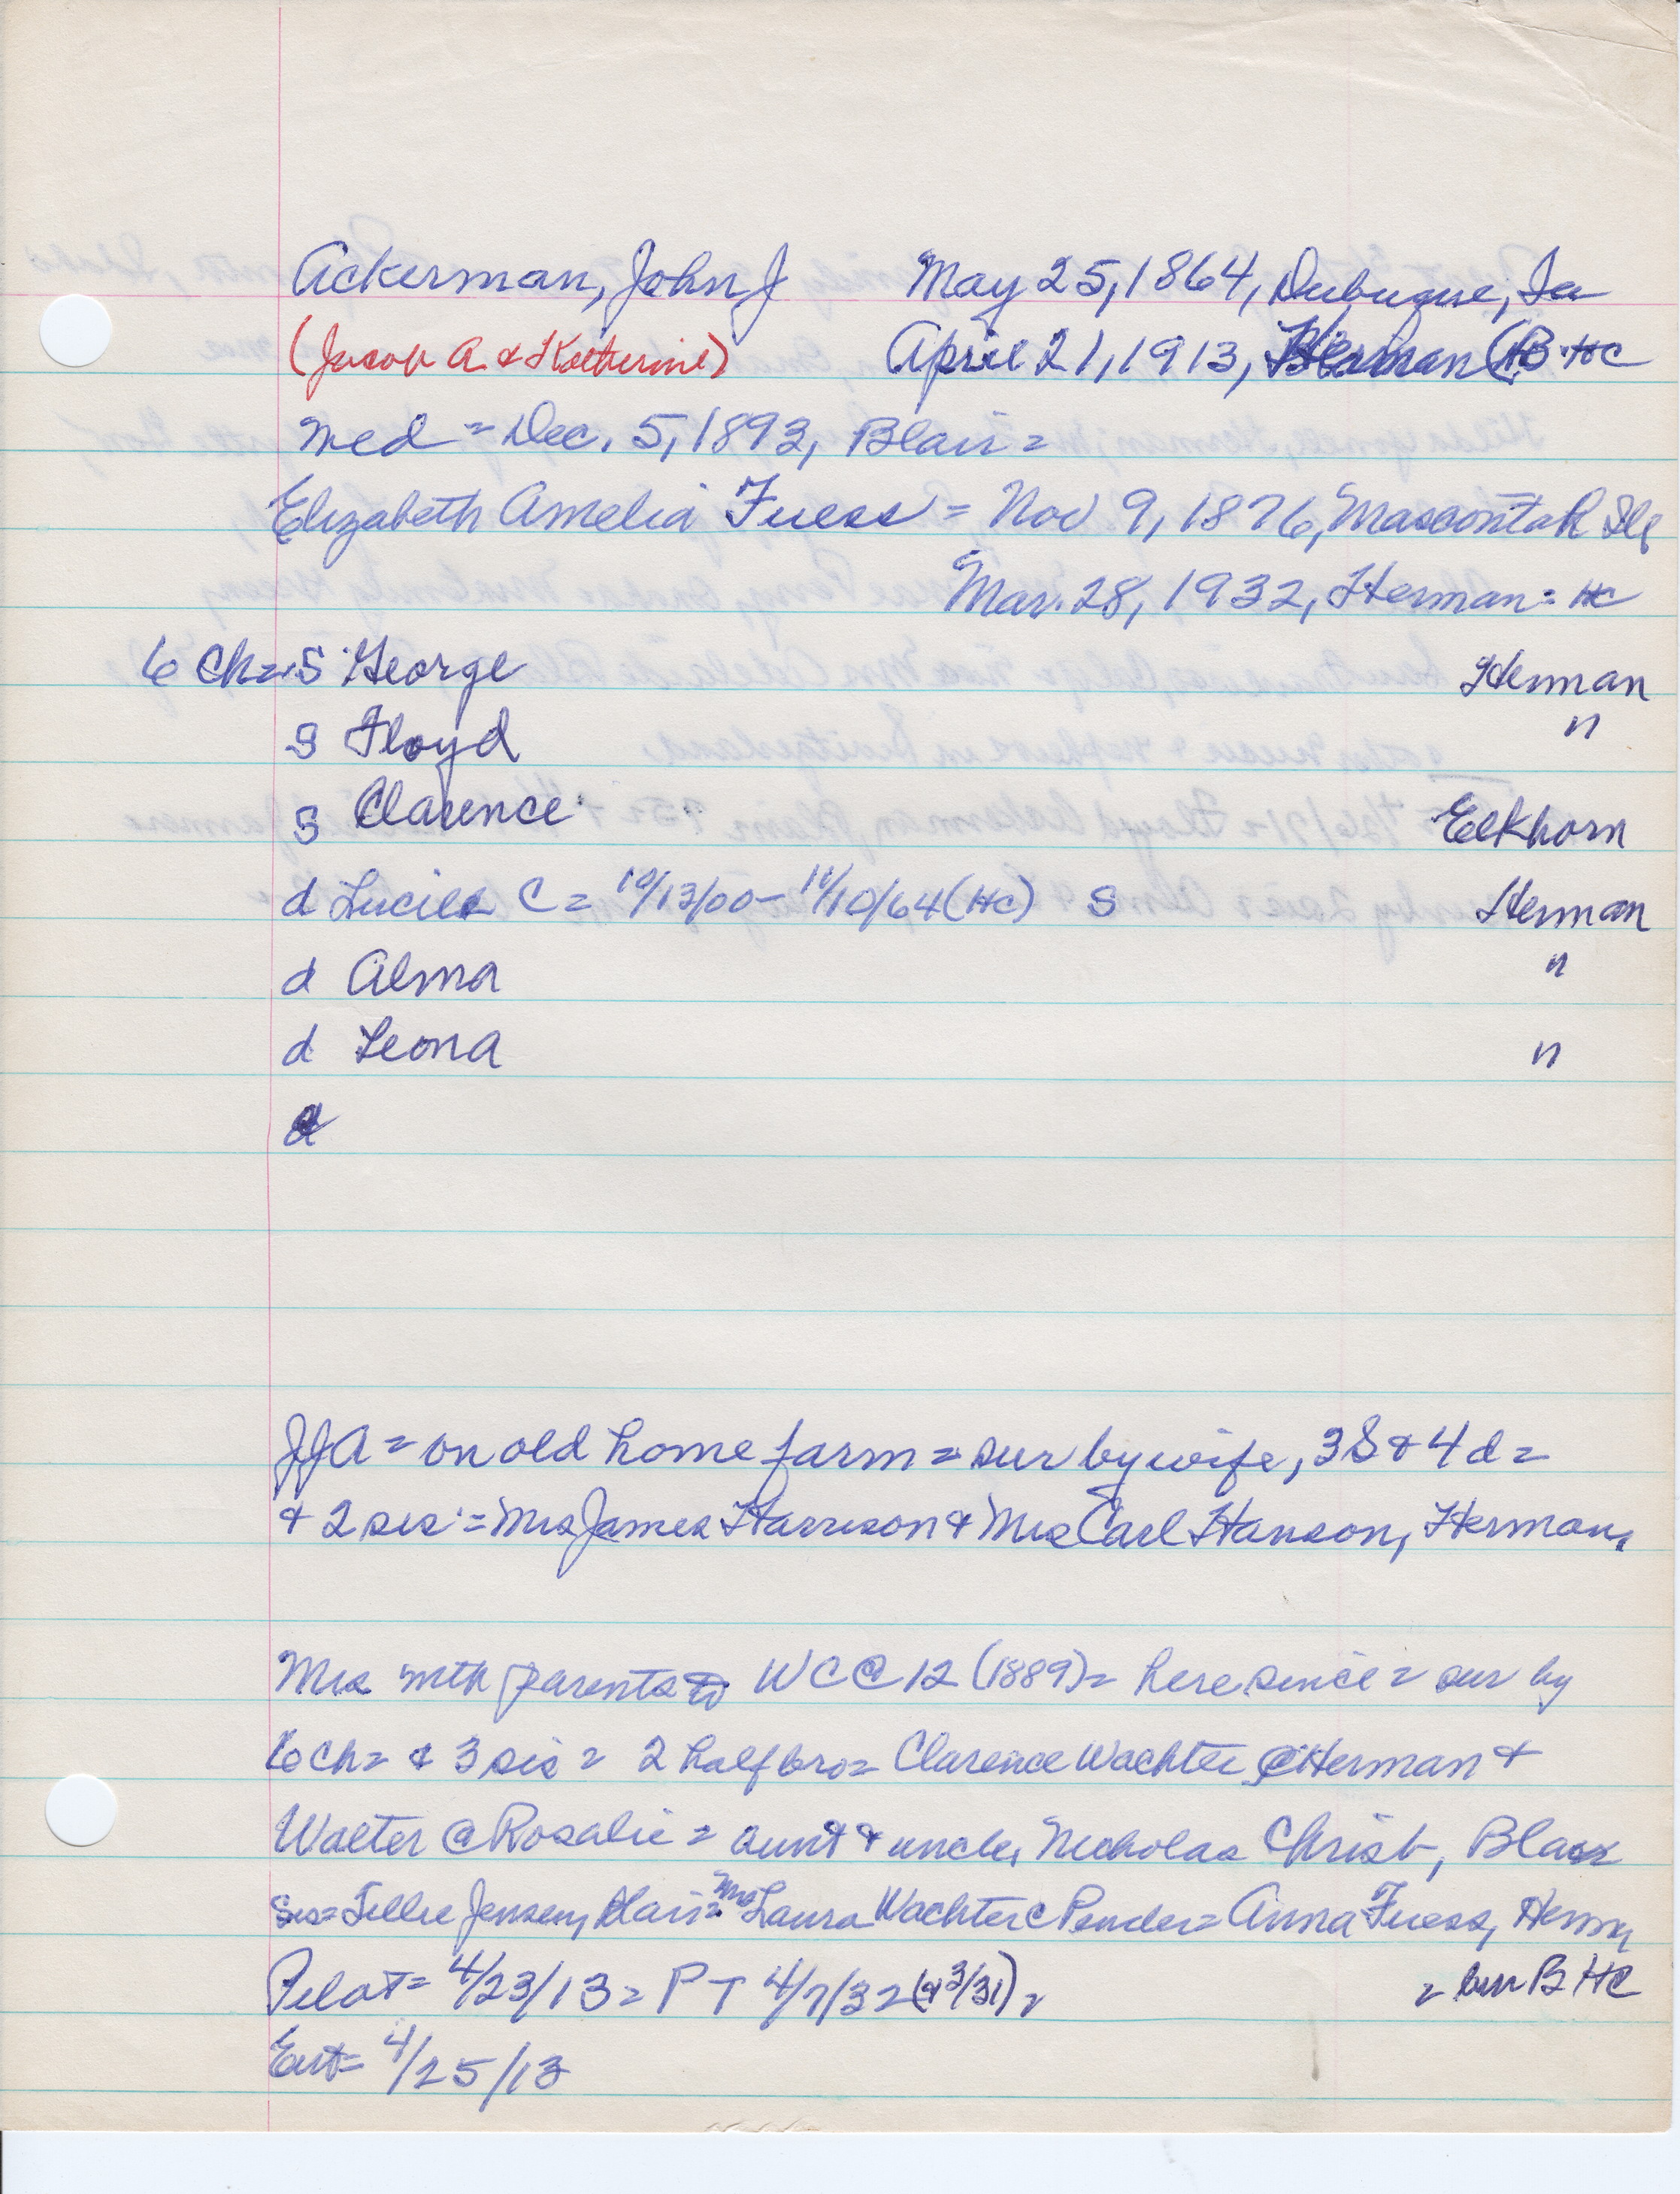 Ackerman, John J May 25, 1864, Dubuque, Ia
(Jacob A & Katherine) April 21, 1913, Herman (B. HC
med = Dec. 5, 1893, Blair =
Elizabeth Amelia Fuess = Nov 9, 1876, Mascontah Ill
Mar. 28, 1932, Herman = HC
6 Ch = S George Herman
S Floyd "
S Clarence Elkhorn
d Lucile C = 10/13/00 - 11/10/64 (HC) S Herman
d Alma "
d Leona "
d
JJA = on old home farm = sur by wife, 3 S & 4 d =
& 2 sis = Mrs James Harrison & Mrs Carl Hanson, Herman,
Mrs with parents to WC @ 12 (1889) = here since = sur by
6 ch = & 3 sis = 2 half bro = Clarence Wachter @ Herman &
Walter @ Rosalie = aunt & uncle, Nicholas Christ, Blair
Sis = Tillie Jensen, Blair = Mrs Laura Wachter @ Pender = Anna Fuess, Herman
Pilot = 4/23/13 = P T 4/7/32 (& 3/31) = = bur B HC
Ent = 4/25/13